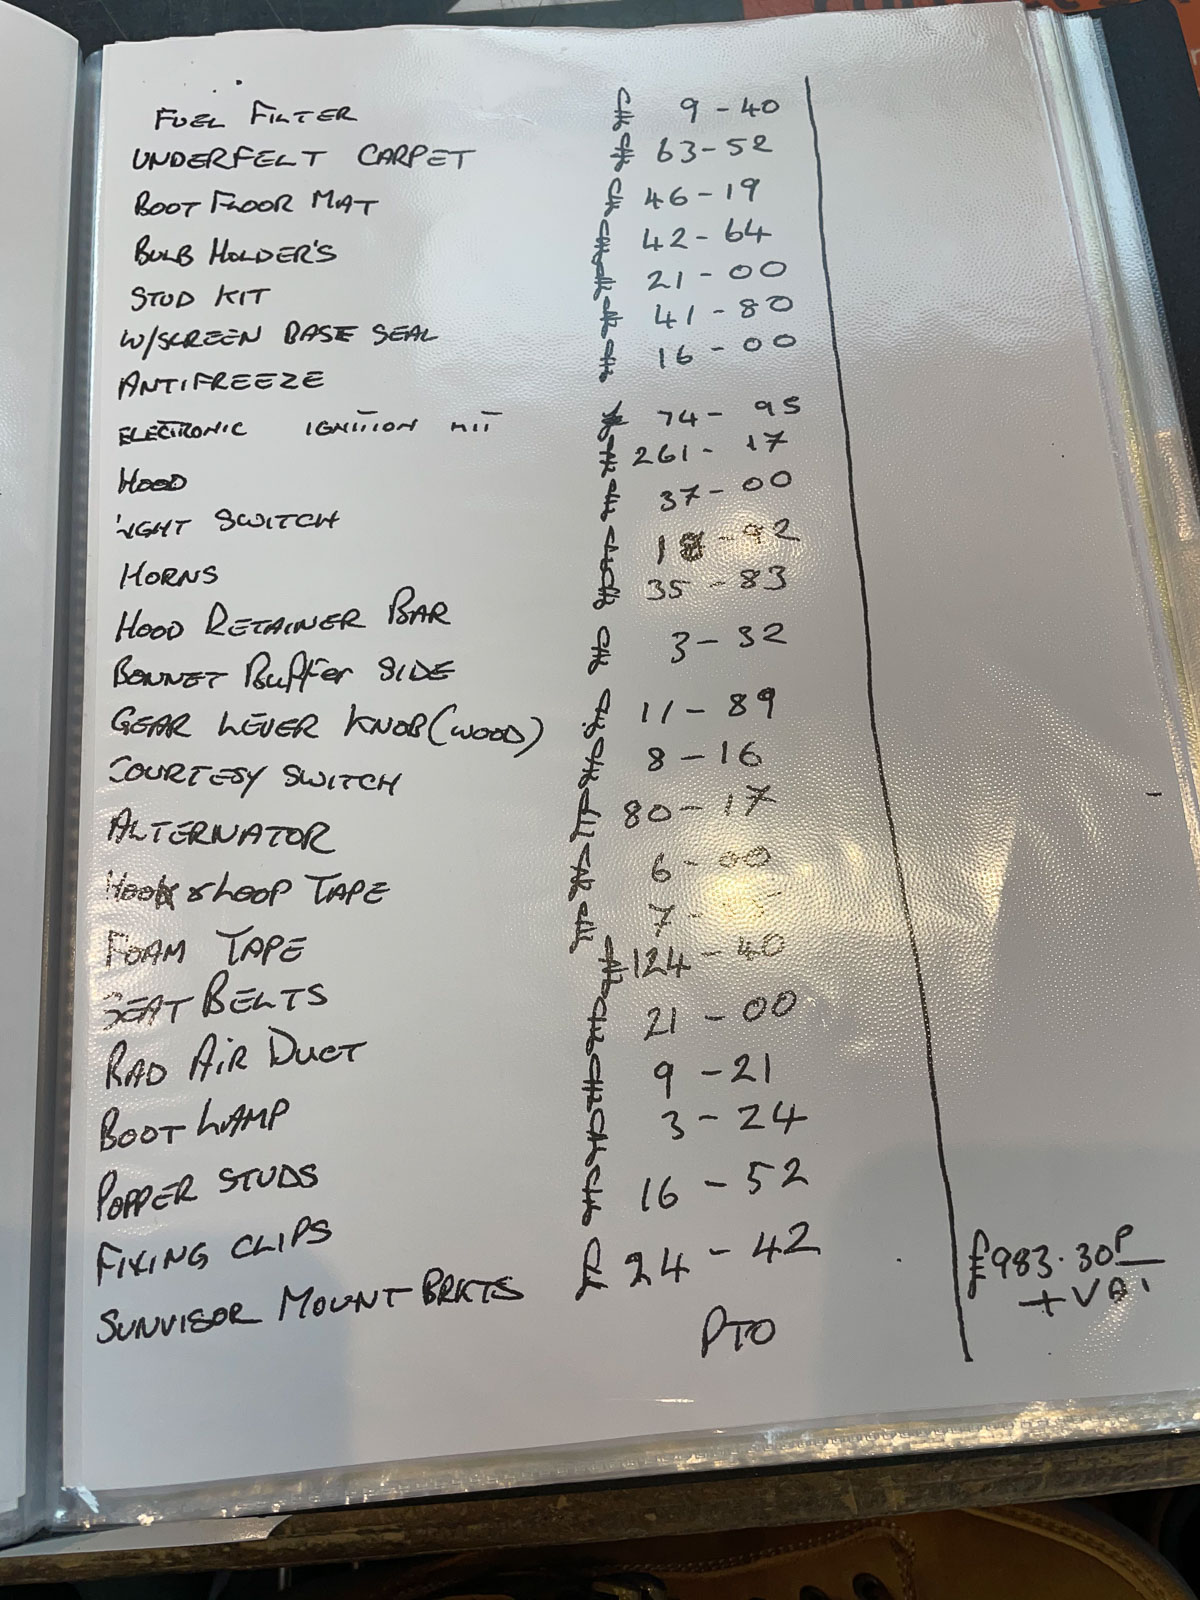 FUEL FILTER £ 9-40
UNDERFELT CARPET £ 63-52
BOOT FLOOR MAT £ 46-19
BULB HOLDER'S £ 42-64
STUD KIT £ 21-00
W/SCREEN BASE SEAL £ 41-80
ANTIFREEZE £ 16-00
ELECTRONIC IGNITION KIT £ 74-95
HOOD £ 261-17
LIGHT SWITCH £ 37-00
HORNS £ 18-92
HOOD RETAINER BAR £ 35-83
BONNET Buffer SIDE £ 3-32
GEAR LEVER KNOB (WOOD) £ 11-89
COURTESY SWITCH £ 8-16
ALTERNATOR £ 80-17
HOOK & LOOP TAPE £ 6-00
FOAM TAPE £ 7-
SEAT BELTS £ 124-40
RAD AIR DUCT £ 21-00
BOOT LAMP £ 9-21
POPPER STUDS £ 3-24
FIXING CLIPS £ 16-52
SUNVISOR MOUNT BRKTS £ 24-42
£983.30P
+ VAT
PTO